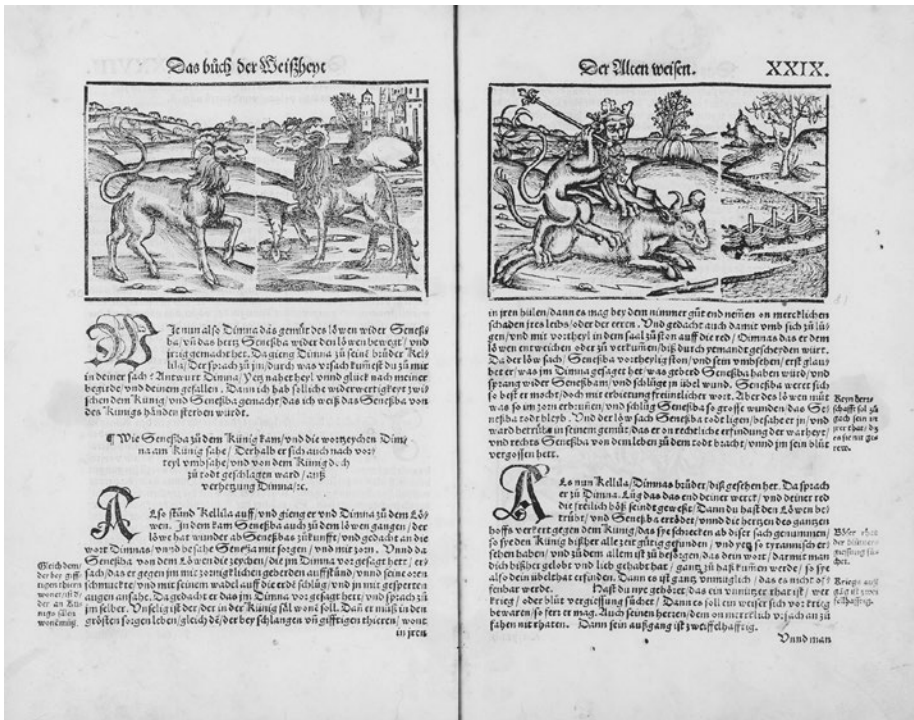 Das bůch der Weißheyt
WJe nun also Dimna das gemüt des löwen wider Seneß-
ba/ vñ das hertz Seneßba wider den löwen bewegt/ vnd
jrrig gemacht het. Da gieng Dimna zu seinē brůder Kel-
lila/ Der sprach zu jm/ durch was vrsach kumest du zu mir
in deiner sach? Antwurt Dimna/ Yetz nahet heyl vnnd glück nach meiner
begirde vnd deinem gefallen. Dann ich hab solliche widerwertigkeyt zwi-
schen dem Künig/ vnd Seneßba gemacht/ das ich weiß das Seneßba von
des Künigs händen sterben würdt.
¶ Wie Seneßba zu dem Künig kam/ vnd die wortzeychen Dim-
na am Künig sahe/ Derhalb er sich auch nach vor-
teyl vmbsahe/ vnd von dem Künig doch
zu todt geschlagen ward/ auß
verhetzung Dimna/ ꝛc.
ALso stůnd Kellila auff/ vnd gieng er vnd Dimna zu dem Lö-
wen. In dem kam Seneßba auch zu dem löwen gangen/ der
löwe hat wunder ab Seneßbas zůkunfft/ vnd gedacht an die
wort Dimnas/ vnnd besahe Seneßba mit sorgen/ vnd mit zorn. Vnnd da
Seneßba von dem Löwen die zeychen/ die jm Dimna vor gesagt hett/ er-
sach/ das er gegen jm mit zorniglichen geberden auffstůnd/ vnnd seine oren
schmuckte/ vnd mit seinem wadel auff die erdē schlůg/ vnd jn mit gesperten
augen ansahe. Da gedacht er das jm Dimna vor gesagt hett/ vnd sprach zu
jm selber. Vnselig ist der/ der in der Künig säl wonē soll. Dañ er můß in den
grösten sorgen leben/ gleich dē/ der bey schlangen vñ gifftigen thieren/ wont
in jren
Gleich dem/
der bey giff-
tigen thiern
wonet/
der an Kü-
nigs sälen
wonē můß.
Der Alten weisen.
XXIX.
in jren hülen/ dann es mag bey dem nimmer gůt end nemē on mercklichen
schaden jres leibs/ oder der erren. Vnd gedacht auch damit vmb sich zu lů-
gen/ vnd mit vortheyl in dem saal zůston auff die red/ Dimnas das er dem
löwen entweichen oder zu verkumen/ biß durch yemandt gescheyden würt.
Da der löw sach/ Seneßba vortheylig ston/ vnd sein vmbsehen/ erst glaub-
bet er/ was jm Dimna gesaget het/ was geberd Seneßba haben würd/ vnd
sprang wider Seneßbam/ vnd schlůge jn übel wund. Seneßba weret sich
so best er mocht/ doch mit erbietung freüntlicher wort. Aber des löwen můt
was so im zorn erbrunen/ vnd schlůg Seneßba so grosse wunden/ das Se-
neßba todt bleyb. Vnd der löw sach Seneßba todt ligen/ besahe er jn/ vnd
ward herrübs in seinem gemüt/ das er on rechtliche erfindung der warheyt/
vnd rechts Seneßba von dem leben zu dem todt bracht/ vnnd jm sein blůt
vergossen hett.
schafft sol zů
ALs nun Kellila/ Dimnas brůder/ diß gesehen het. Da sprach
er zu Dimna. Lůg das das end deiner werck/ vnd deiner red
die freilich böß seindt gewesē/ Dann du hast den Löwen be-
trübt/ vnd Seneßba ertödet/ vnnd die hertzen des gantzen
hoffs verkert gegen dem Künig/ das sye schrecken ab diser sach genummen/
so sye den Künig bißher alle zeit gütig gefunden/ vnd yetz so tyrannisch er-
sehen haben/ vnd zu dem allem ist zu besorgen/ das dem wort/ darmit man
dich bißher gelobt vnd lieb gehabt hat/ gantz zu haß kumēn werde/ so sye
also dein übelthat erfinden. Dann es ist gantz vnmüglich/ das es nicht of-
fenbar werde. Hast du nye gehöret/ das ein vnnützer rhat ist/ wer
krieg/ oder blůt vergiessung sůchet? Dann es soll ein weiser sich vor krieg
waren/ so fert er mag. Auch seinen herren/ dem on mercklich vrsach an zu
fahen nit rhaten. Dann sein außgang ist zweiffelhafftig.
Böser rhat
Kriegs auß-
gāg ist zwei-
felhafftig.
Vnnd man